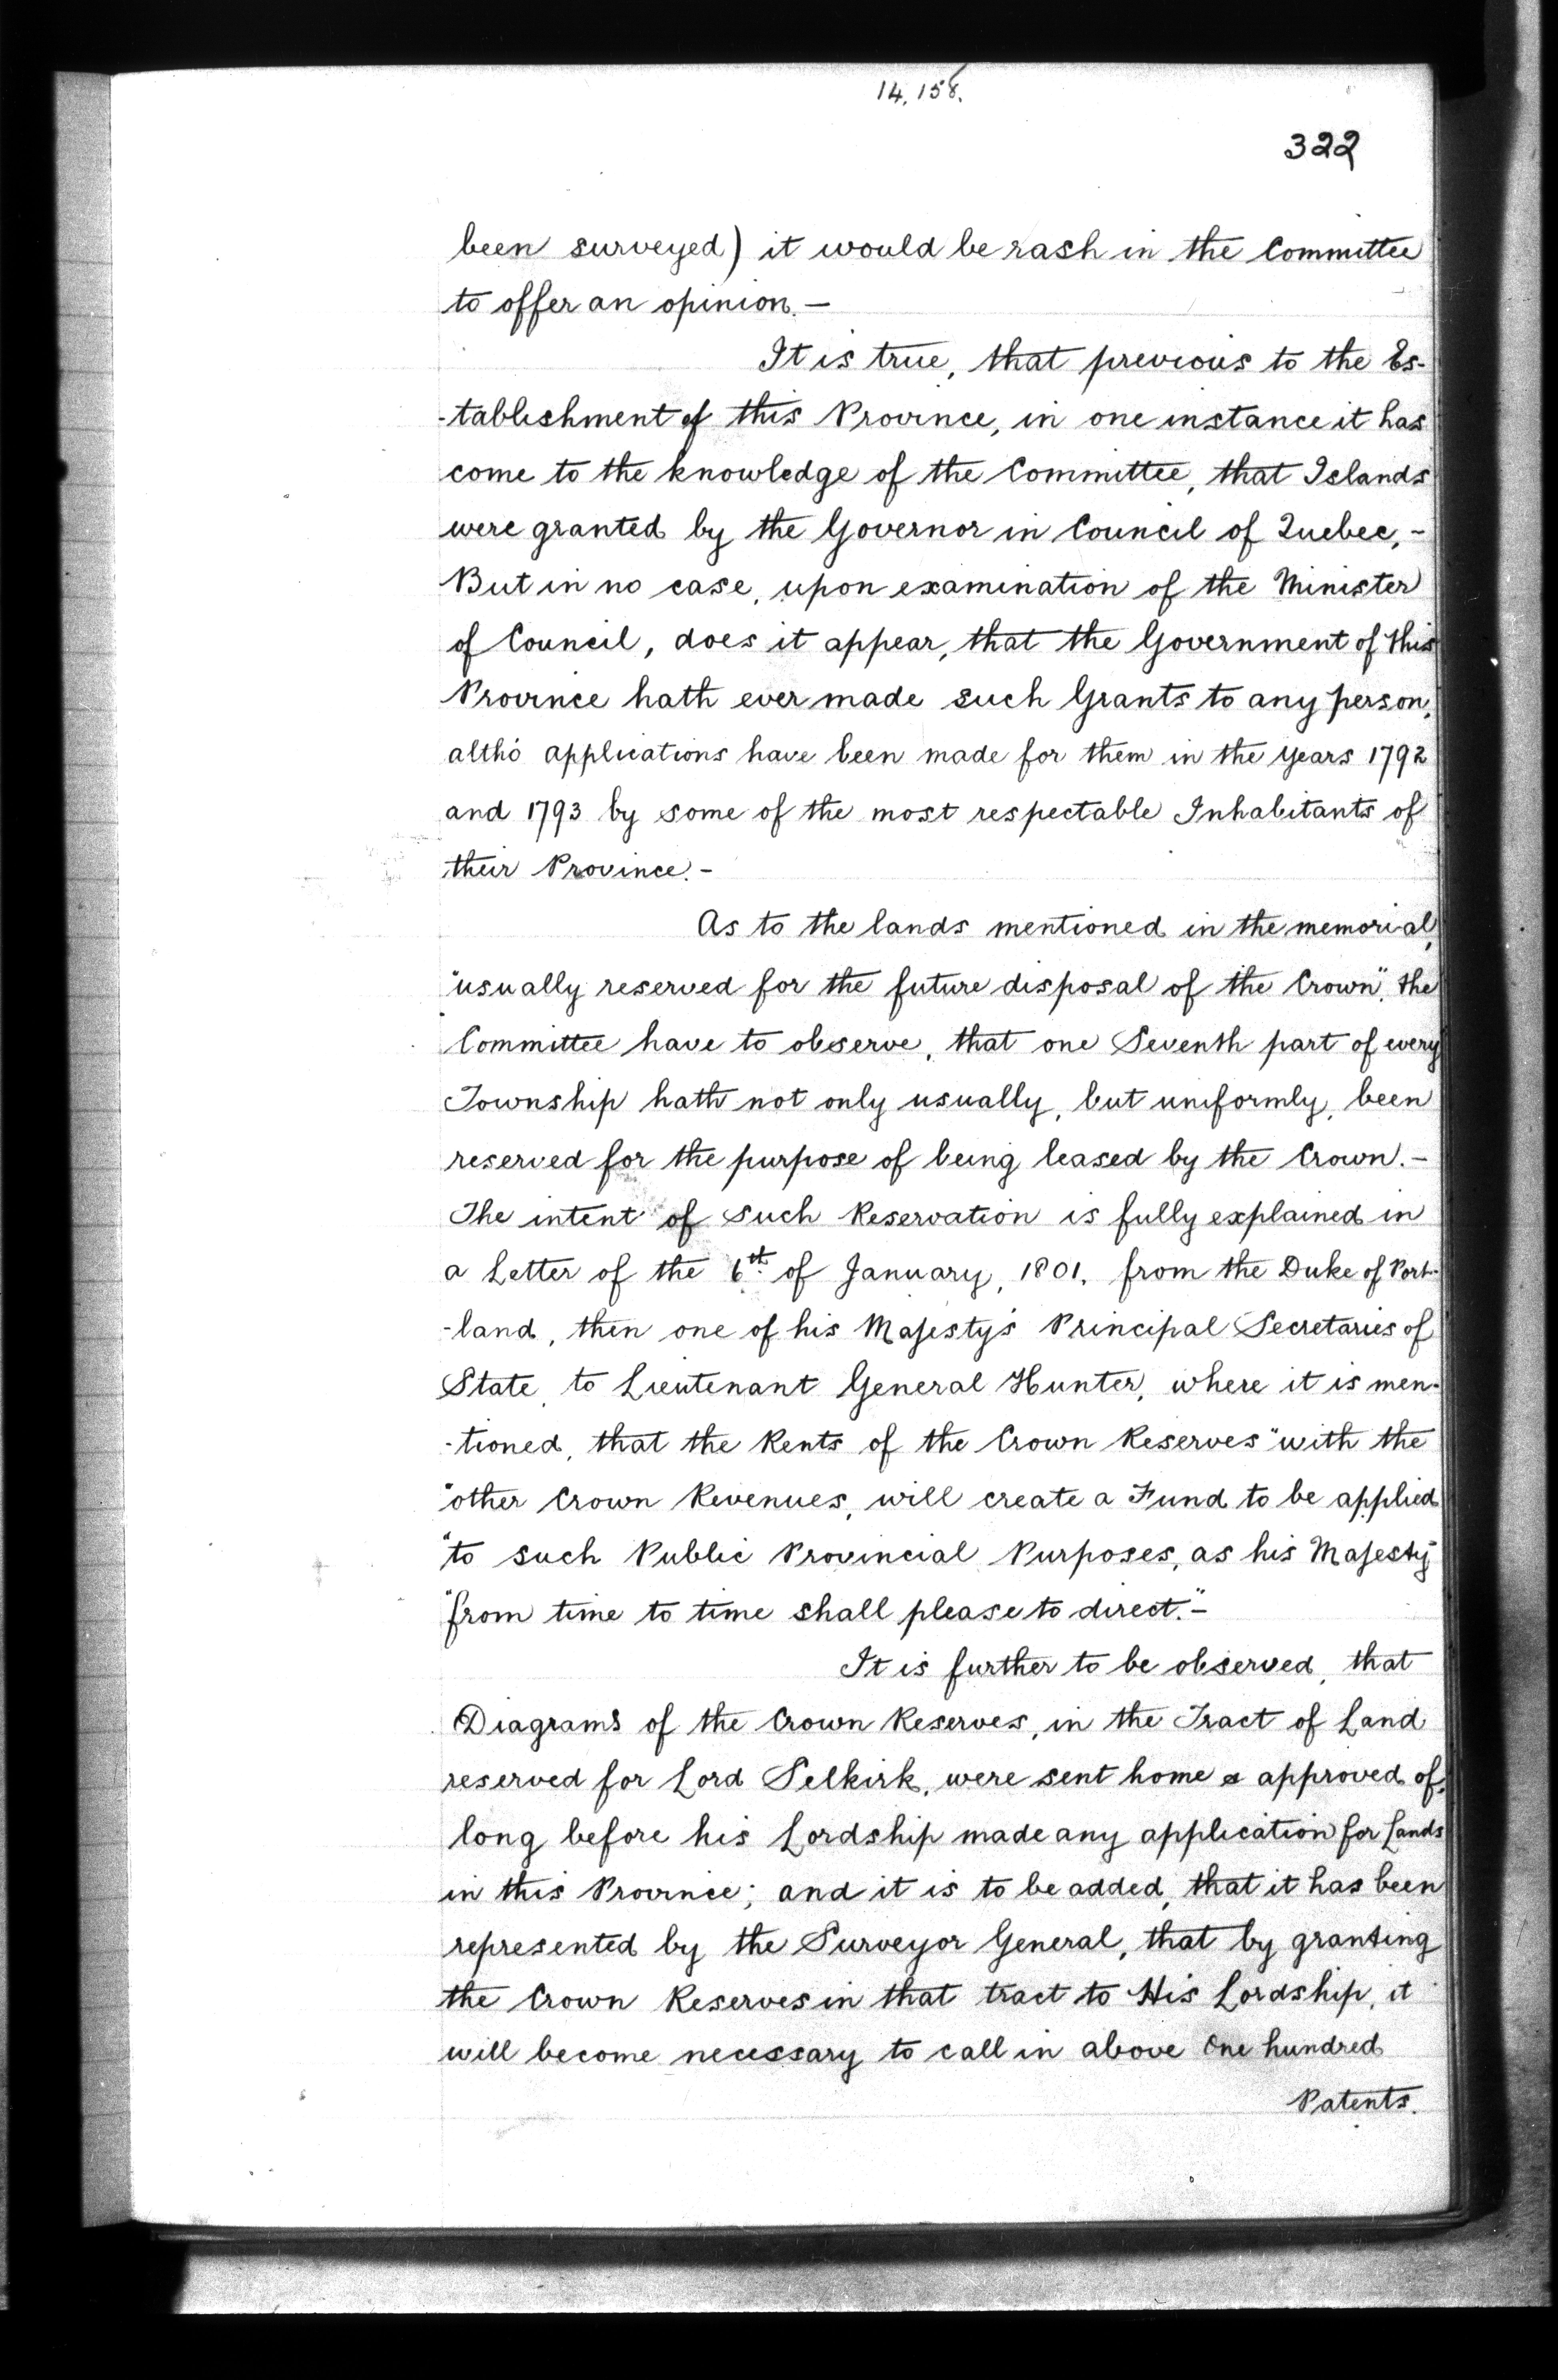 14,158.
322
been surveyed) it would be rash in the Committee
to offer an opinion. —
It is true, that previous to the Es-
-tablishment of this Province, in one instance it has
come to the knowledge of the Committee, that Islands
were granted by the Governor in Council of Quebec, -
But in no case, upon examination of the Minister
of Council, does it appear, that the Government of this
Province hath ever made such Grants to any person,
altho' applications have been made for them in the years 1792
and 1793 by some of the most respectable Inhabitants of
their Province. -
As to the lands mentioned in the memorial,
"usually reserved for the future disposal of the Crown", the
Committee have to observe, that one Seventh part of every
Township hath not only usually, but uniformly, been
reserved for the purpose of being leased by the Crown. -
The intent of such Reservation is fully explained in
a Letter of the 6th of January, 1801, from the Duke of Port-
-land, then one of his Majesty's Principal Secretaries of
State, to Lieutenant General Hunter, where it is men-
-tioned, that the Rents of the Crown Reserves "with the
"other Crown Revenues, will create a Fund to be applied
"to such Public Provincial Purposes, as his Majesty
"from time to time shall please to direct." -
It is further to be observed, that
Diagrams of the Crown Reserves, in the Tract of Land
reserved for Lord Selkirk, were sent home & approved of,
long before his Lordship made any application for Lands
in this Province; and it is to be added, that it has been
represented by the Surveyor General, that by granting
the Crown Reserves in that tract to His Lordship, it
will become necessary to call in above One hundred
Patents.